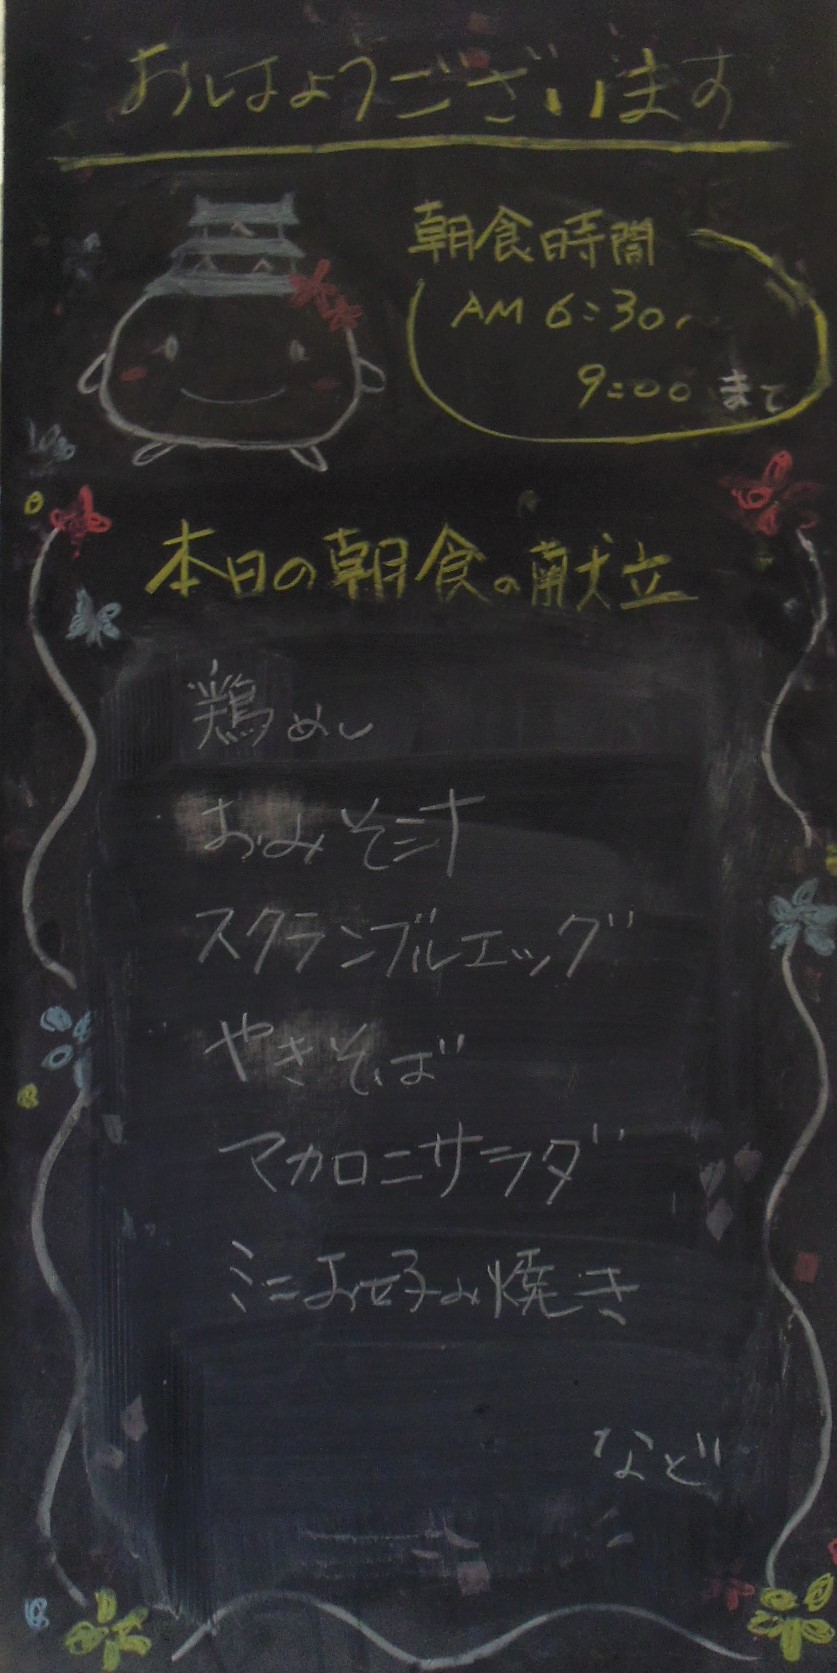 おはようございます
朝食時間
AM 6:30〜
9:00まで
本日の朝食の献立
鶏めし
おみそ汁
スクランブルエッグ
やきそば
マカロニサラダ
ミニお好み焼き
など